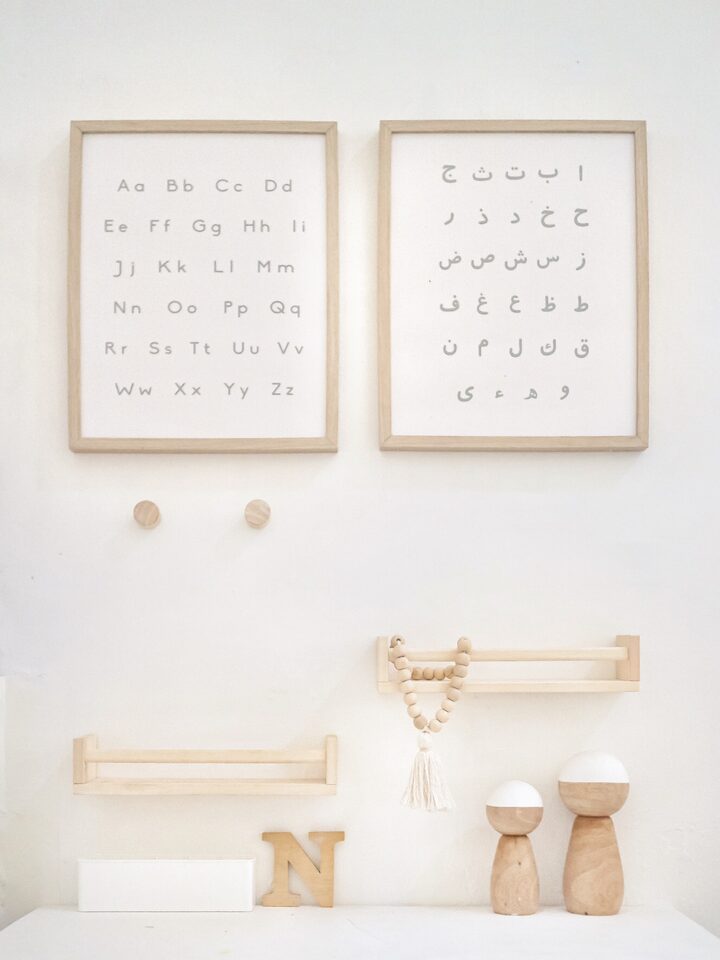 Aa Bb Cc Dd
Ee Ff Gg Hh Ii
Jj Kk Ll Mm
Nn Oo Pp Qq
Rr Ss Tt Uu Vv
Ww Xx Yy Zz
ا ب ت ث ج
ح خ د ذ ر
ز س ش ص ض
ط ظ ع غ ف
ق ك ل م ن
و ه ء ى
N